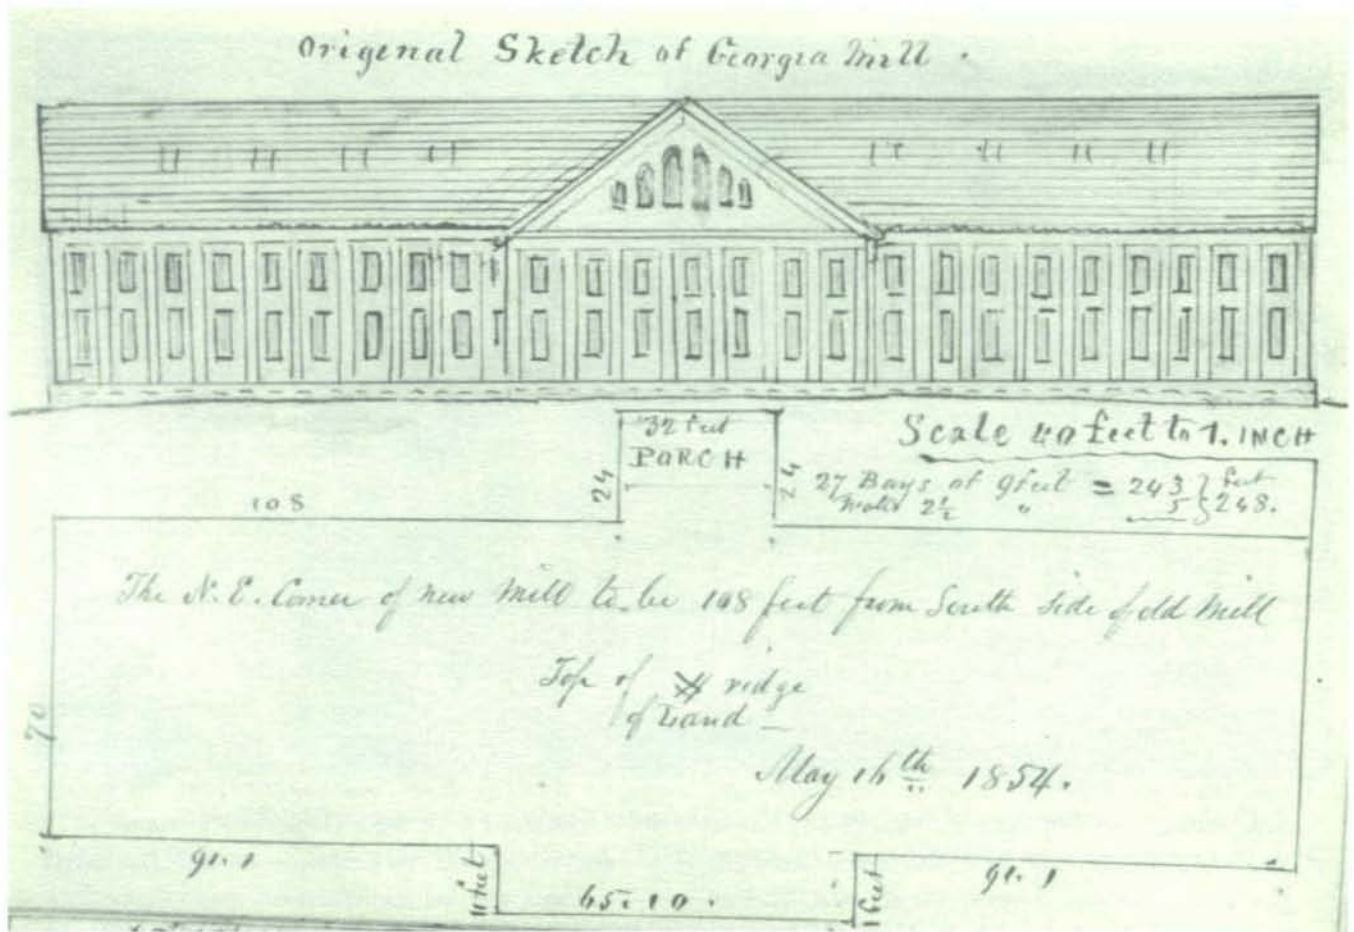 Original Sketch of Georgia Mill.
32 feet
PORCH
24
24
Scale 40 feet to 1. INCH
27 Bays of 9 feet = 243 } feet
2½ " 5 } 248.
108
The N.E. Corner of new Mill to be 108 feet from South side of old Mill
Top of ridge
of Land –
May 16th 1854.
70
91. 1
feet
65. 10.
feet
91. 1